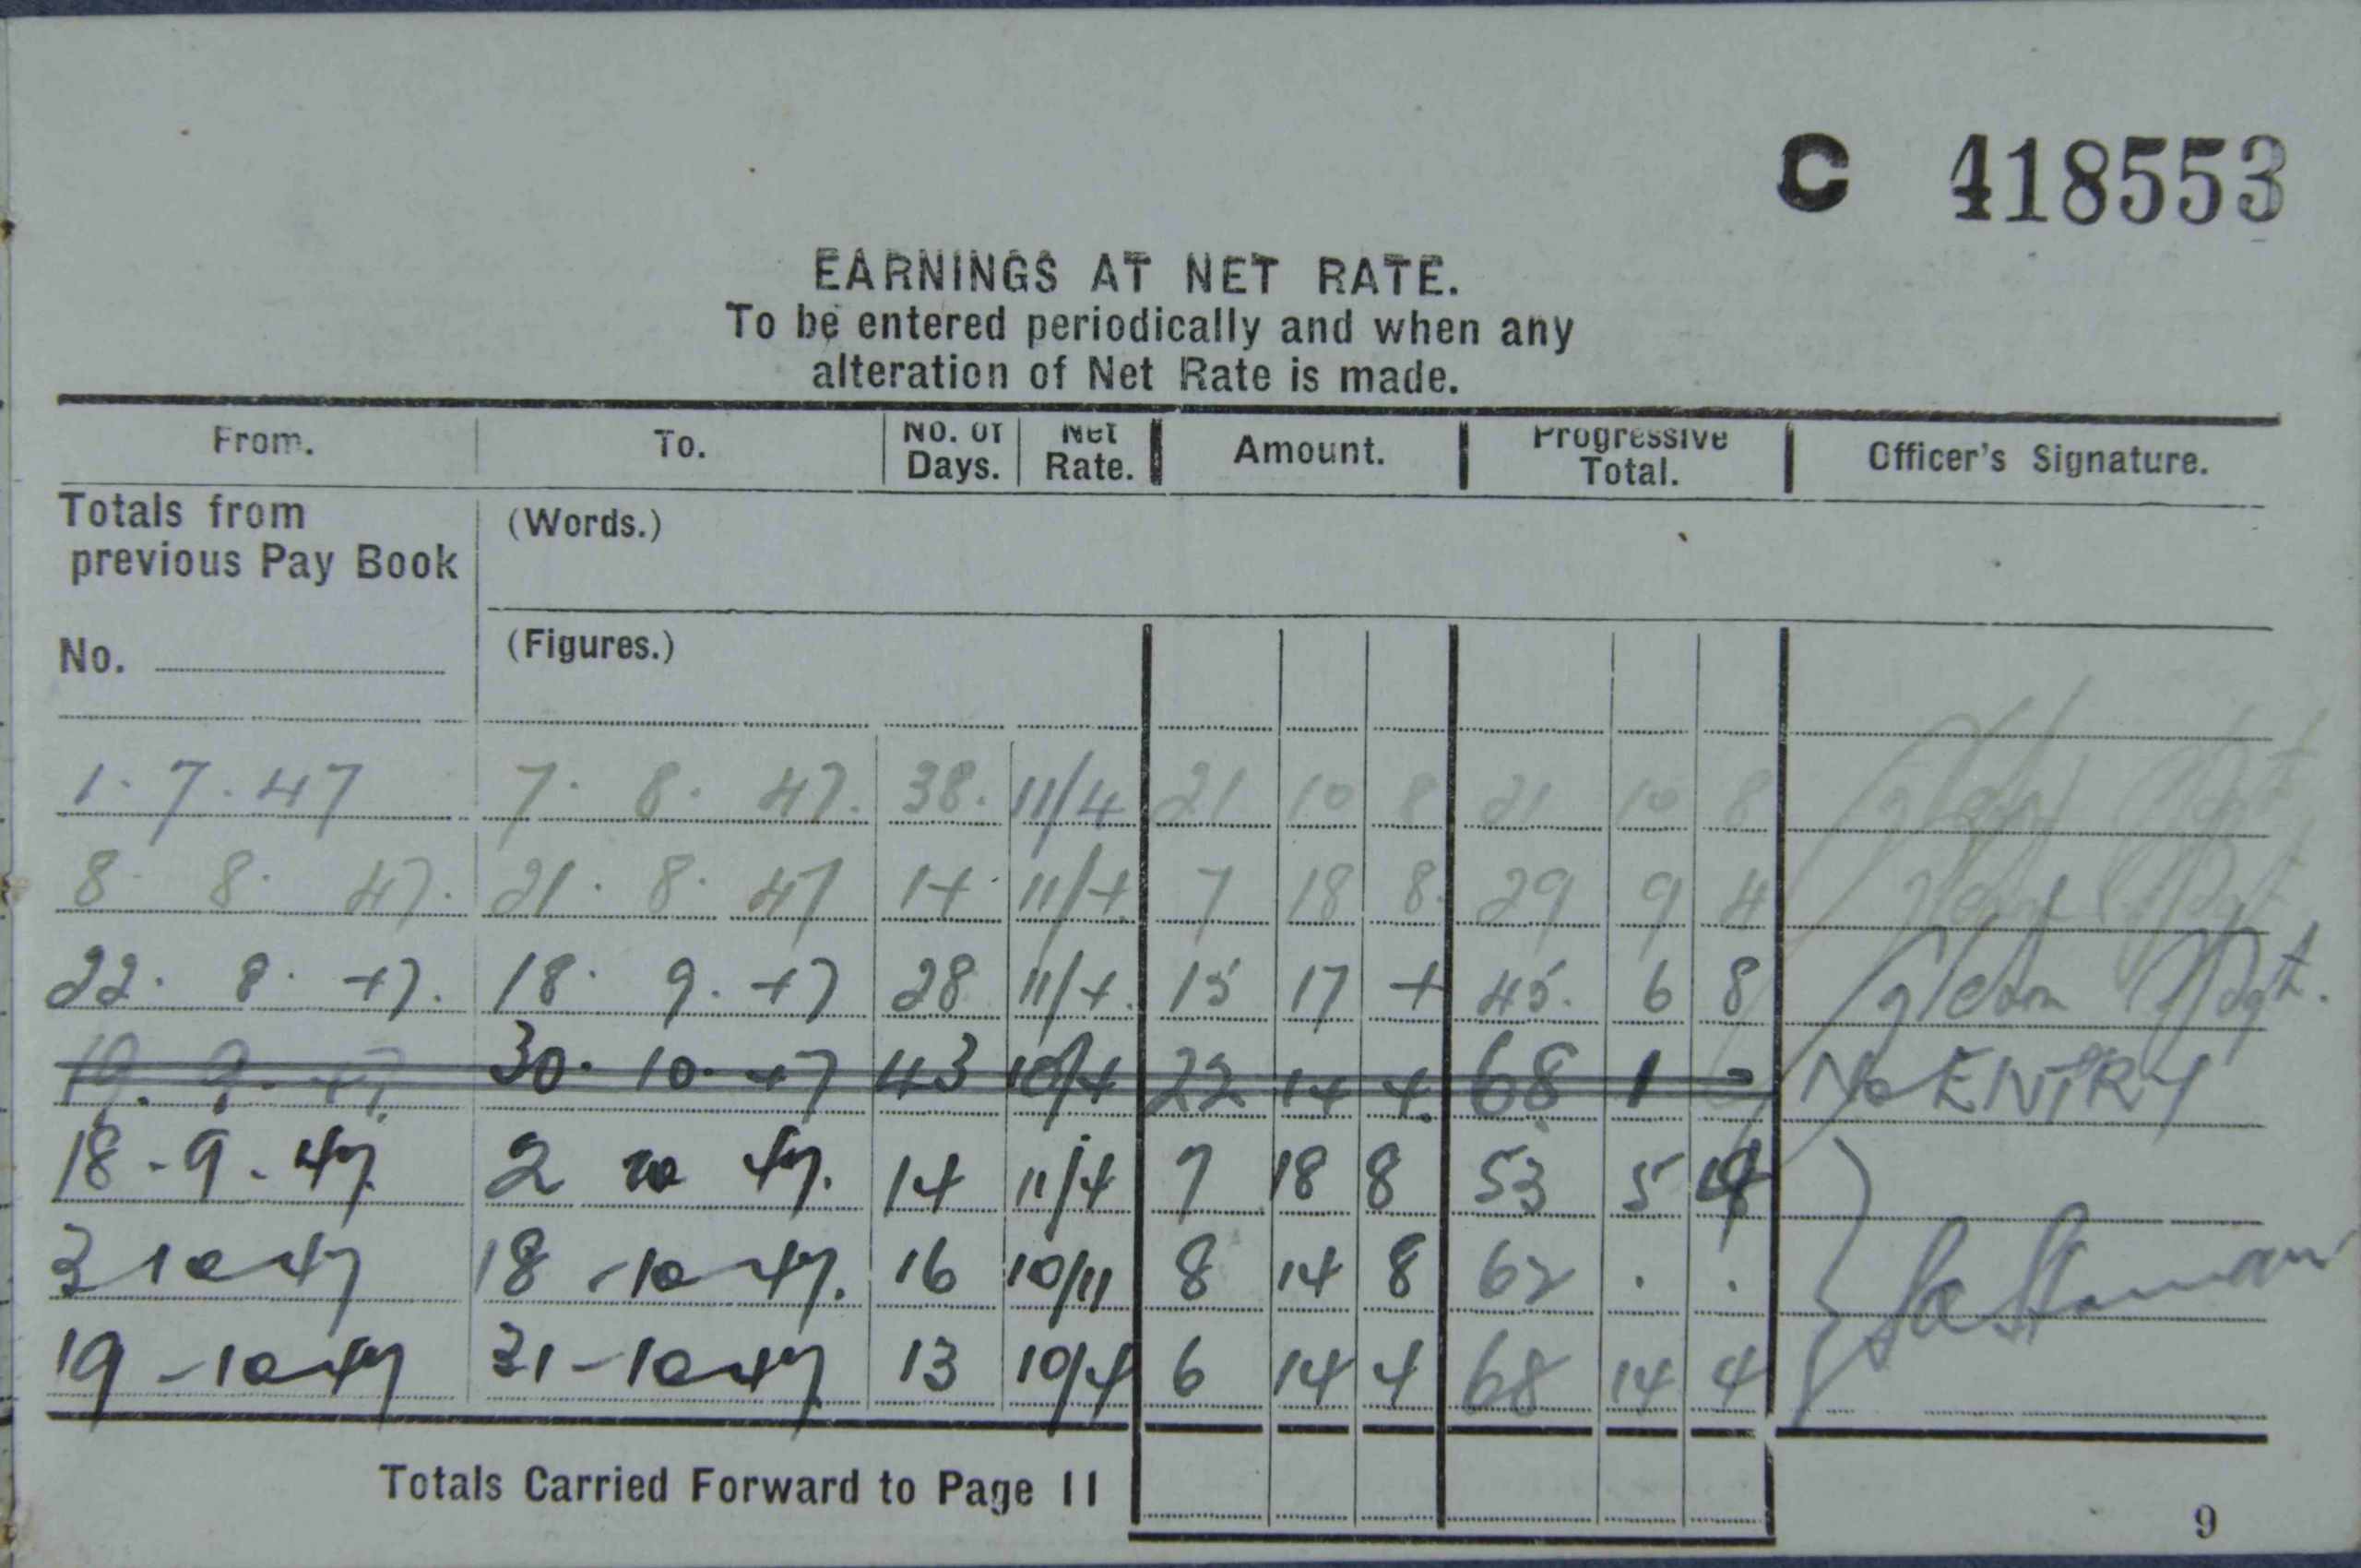 C 418553
EARNINGS AT NET RATE.
To be entered periodically and when any
alteration of Net Rate is made.
From. To. No. of Days. Net Rate. Amount. Progressive Total. Officer's Signature.
Totals from previous Pay Book (Words.)
No. (Figures.)
1. 7. 47 7. 8. 47. 38. 11/4 21 10 8 21 10 8
8. 8. 47. 21. 8. 47 14 11/4 7 18 8. 29 9 4
22. 8. 47. 18. 9. 47 28 11/4. 15 17 4 45. 6 8
19. 9. 47. 30. 10. 47 43 10/4 22 14 4. 68 1 0 No ENTRY
18-9-47 2 10 47. 14 11/4 7 18 8 53 5 4
3 10 47 18-10-47. 16 10/11 8 14 8 62 . .
19-10-47 31-10-47 13 10/4 6 14 4 68 14 4
Totals Carried Forward to Page 11
9